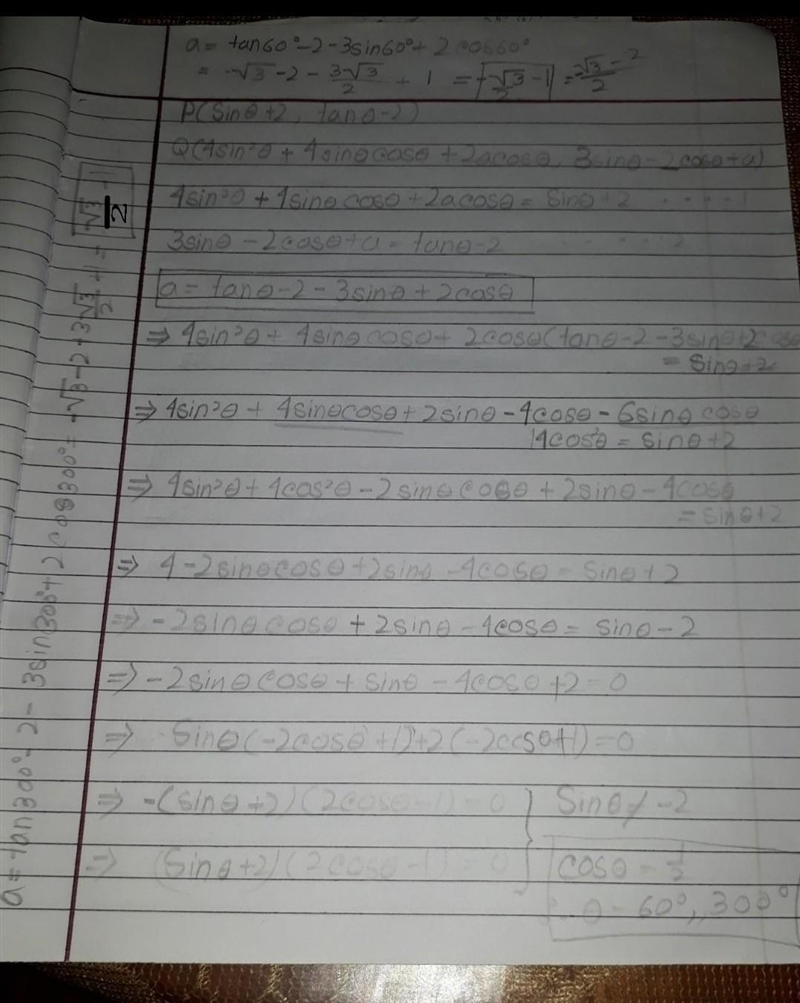 a = tan60° - 2 - 3sin60° + 2cos60°
= √3 - 2 - 3√3/2 + 1 = -√3/2 - 1 = -√3 - 2/2
P(sinθ+2, tanθ-2)
Q(4sin²θ + 4sinθcosθ + 2acosθ, 3sinθ - 2cosθ + a)
4sin²θ + 4sinθcosθ + 2acosθ = sinθ+2 ·····1
3sinθ - 2cosθ + a = tanθ-2 ·····2
a = tanθ - 2 - 3sinθ + 2cosθ
⇒ 4sin²θ + 4sinθcosθ + 2cosθ(tanθ - 2 - 3sinθ + 2cosθ
= sinθ+2
⇒ 4sin²θ + 4sinθcosθ + 2sinθ - 4cosθ - 6sinθcosθ
4cos²θ = sinθ+2
⇒ 4sin²θ + 4cos²θ - 2sinθcosθ + 2sinθ - 4cosθ
= sinθ+2
⇒ 4 - 2sinθcosθ + 2sinθ - 4cosθ = sinθ + 2
⇒ -2sinθcosθ + 2sinθ - 4cosθ = sinθ - 2
⇒ -2sinθcosθ + sinθ - 4cosθ + 2 = 0
⇒ sinθ(-2cosθ+1) + 2(-2cosθ+1) = 0
⇒ -(sinθ+2)(2cosθ-1) = 0 } sinθ ≠ -2
⇒ (sinθ+2)(2cosθ-1) = 0 cosθ = 1/2
θ = 60°, 300°
a = tan300° - 2 - 3sin300° + 2cos300° = -√3 - 2 + 3√3/2 + 1 = √3/2 - 1